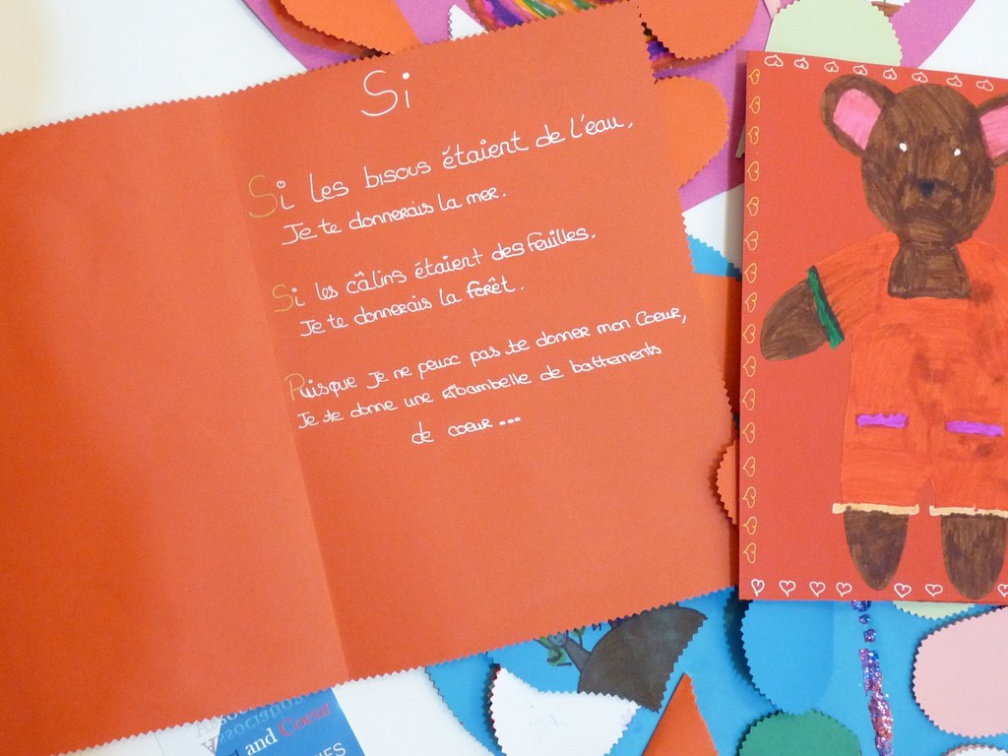 Si
Si les bisous étaient de l'eau,
Je te donnerais la mer.
Si les câlins étaient des feuilles,
Je te donnerais la forêt.
Puisque je ne peux pas te donner mon Coeur,
Je te donne une ribambelle de battements
de coeur...
and Coeur